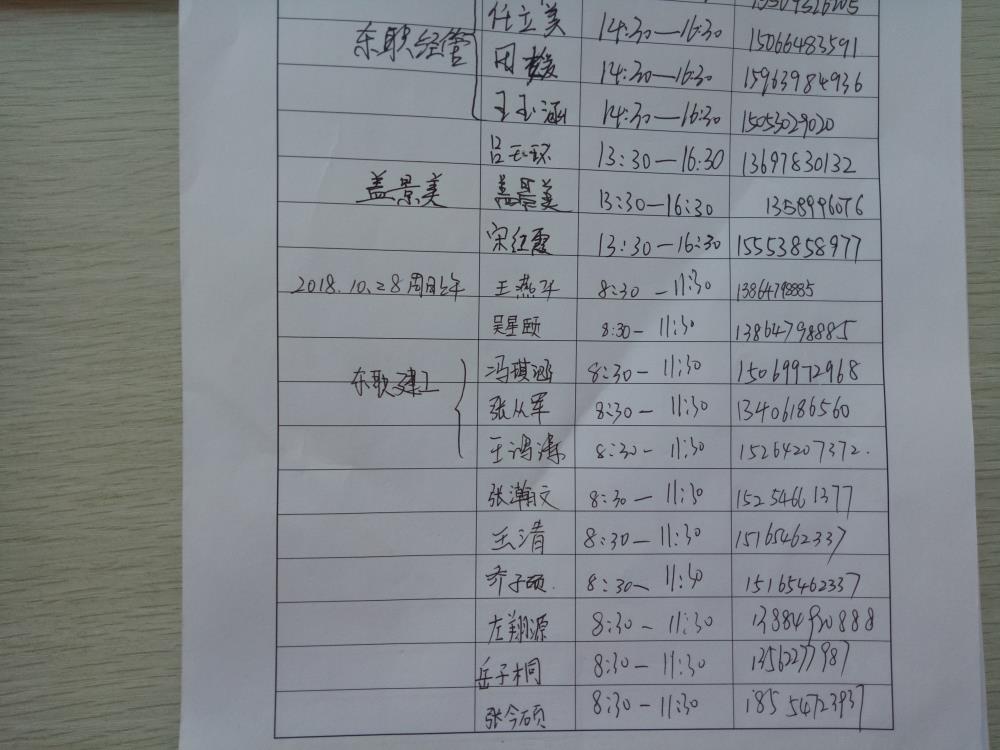 任立美 14:30—16:30 15066483591
东职经管 周媛 14:30—16:30 15963984936
王玉涵 14:30—16:30 15053029020
吕玉环 13:30—16:30 13697830132
盖景美 盖景美 13:30—16:30 1358996076
宋红霞 13:30—16:30 15553858977
2018.10.28周日上午 王燕子 8:30—11:30 13864798885
吴星颐 8:30—11:30 13864798885
东职建工 冯琪涵 8:30—11:30 15069972968
张从军 8:30—11:30 13406186560
王冯涛 8:30—11:30 15264207372.
张瀚文 8:30—11:30 15254661377
王清 8:30—11:30 15165462337
乔子硕. 8:30—11:30 15165462337
左翔源 8:30—11:30 13884920888
岳子桐 8:30—11:30 13562277987
张今硕 8:30—11:30 18554723937